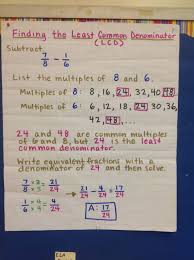 Finding the Least Common Denominator
(LCD)
Subtract.
7/8 - 1/6
List the multiples of 8 and 6.
Multiples of 8: 8, 16, 24, 32, 40, 48
Multiples of 6: 6, 12, 18, 24, 30, 36,
42, 48, ...
24 and 48 are common multiples
of 6 and 8, but 24 is the least
common denominator.
Write equivalent fractions with a
denominator of 24 and then solve.
7/8 × 3/3 = 21/24
21/24 - 4/24 = 17/24
1/6 × 4/4 = 4/24
A: 17/24